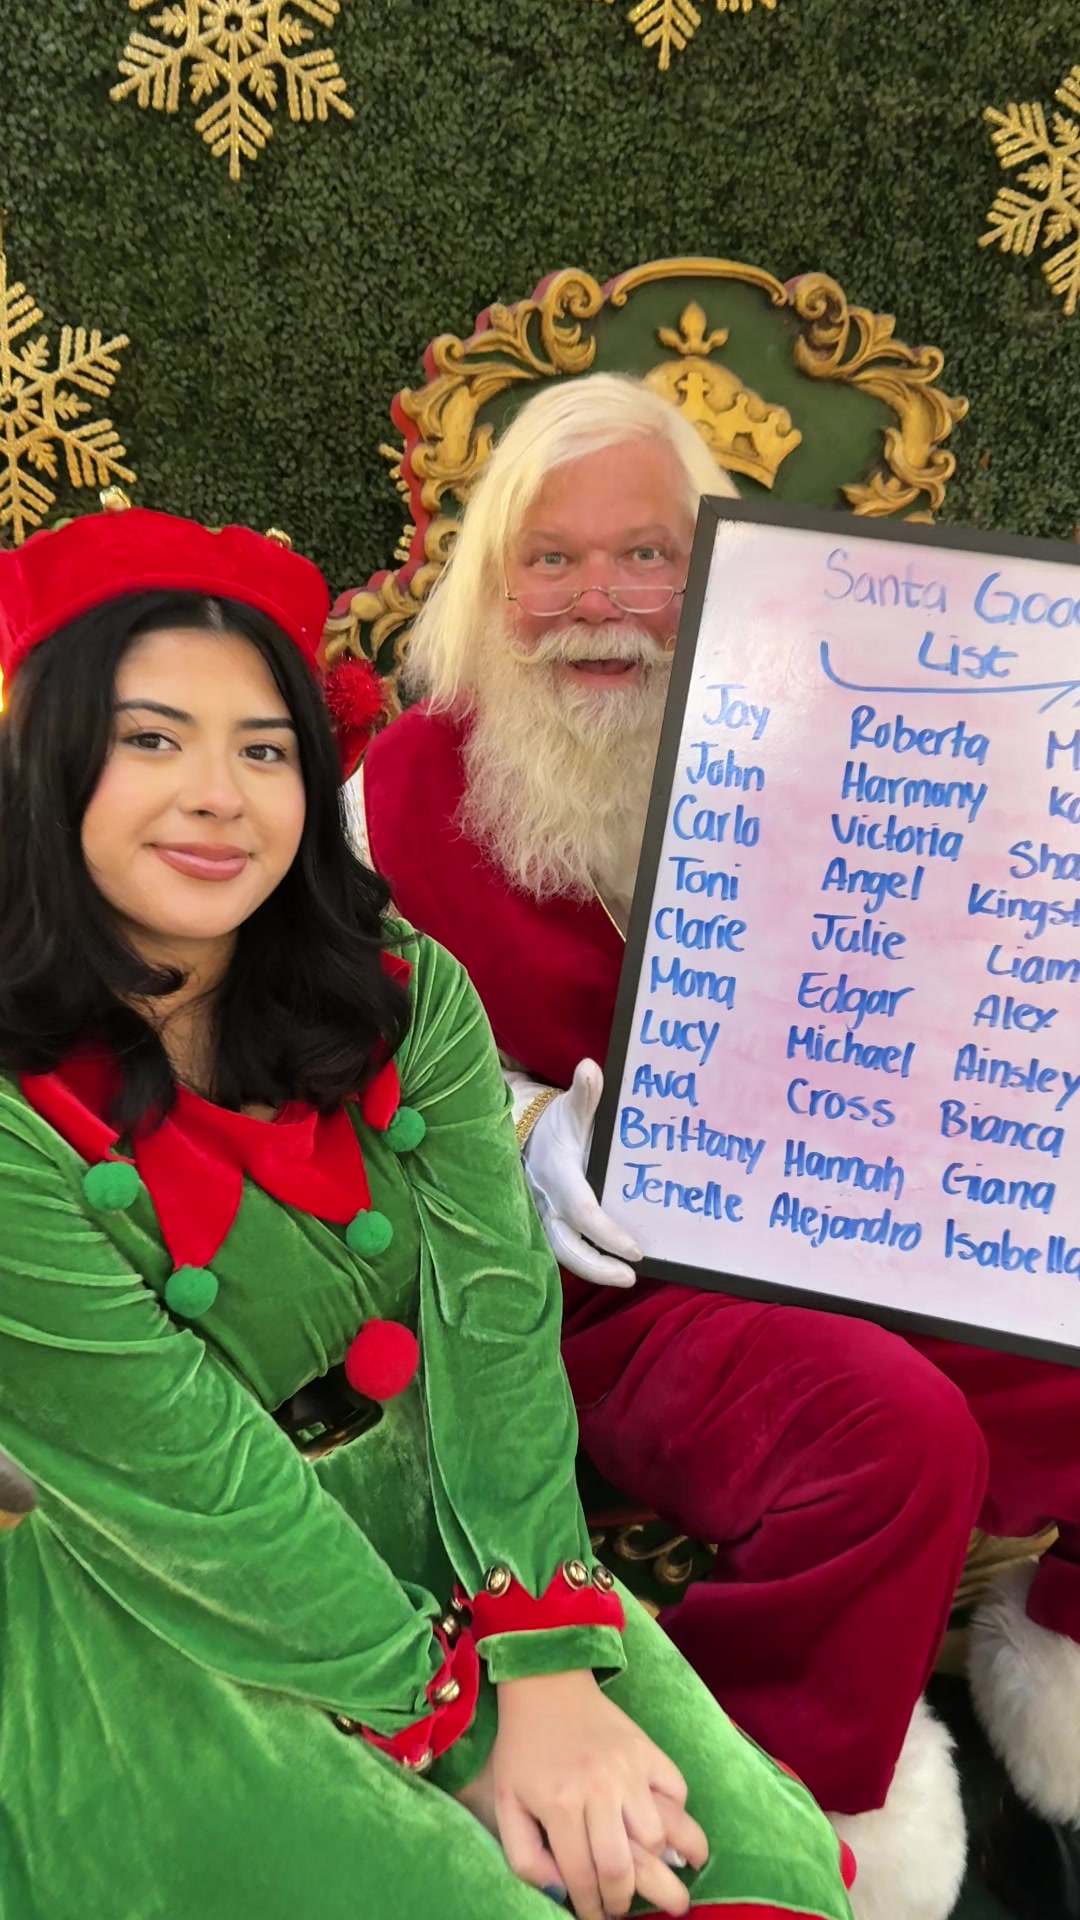 Santa Goo
List
Jay Roberta M
John Harmony Ka
Carlo Victoria Sha
Toni Angel Kingst
Clarie Julie Liam
Mona Edgar Alex
Lucy Michael Ainsley
Ava Cross Bianca
Brittany Hannah Giana
Jenelle Alejandro Isabella